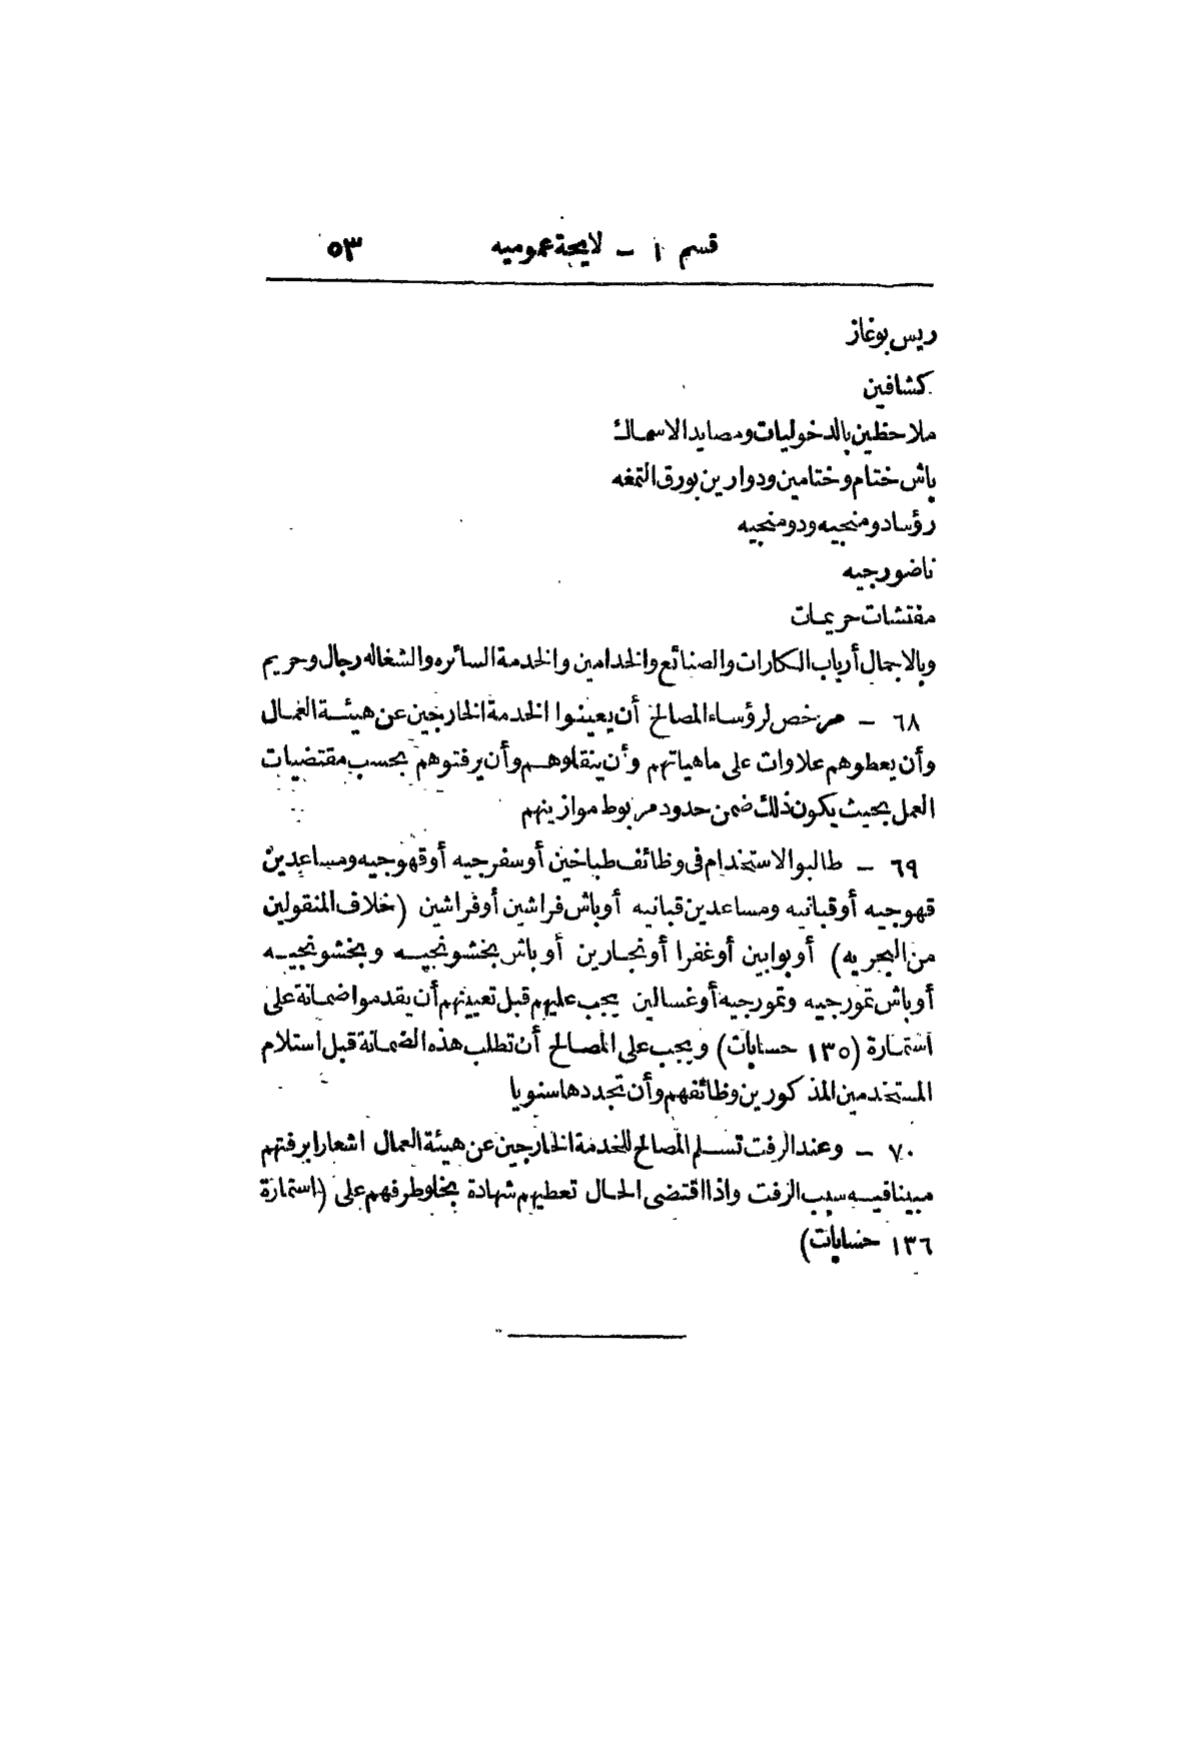 قسم ١ – لايحة عموميه ٥٣
ريس بوغاز
كشافين
ملاحظين بالدخوليات ومصايد الاسماك
باش ختام وختامين ودوارين بورق التمغه
رؤسا دومنجيه ودومنجيه
ناضورجيه
مفتشات حريمات
وبالاجمال أرباب الكارات والصنائع والخدامين والخدمة السائره والشغاله رجال وحريم
٦٨ – مرخص لرؤساء المصالح أن يعينوا الخدمة الخارجين عن هيئة العمال
وأن يعطوهم علاوات على ماهياتهم وأن ينقلوهم وأن يرفتوهم بحسب مقتضيات
العمل بحيث يكون ذلك ضمن حدود مربوط موازينهم
٦٩ – طالبو الاستخدام فى وظائف طباخين أو سفرجيه أو قهوجيه ومساعدين
قهوجيه أو قبانيه ومساعدين قبانيه أو باش فراشين أو فراشين (خلاف المنقولين
من البحريه) أو بوابين أو غفرا أو نجارين أو باش بخشونجيه وبخشونجيه
أو باش تمورجيه وتمورجيه أو غسالين يجب عليهم قبل تعيينهم أن يقدموا ضمانة على
استمارة (١٣٥ حسابات) ويجب على المصالح أن تطلب هذه الضمانة قبل استلام
المستخدمين المذكورين وظائفهم وأن تجددها سنويا
٧٠ – وعند الرفت تسلم المصالح للخدمة الخارجين عن هيئة العمال اشعارا برفتهم
مبينا فيه سبب الرفت واذا اقتضى الحال تعطيهم شهادة بخلو طرفهم على (استمارة
١٣٦ حسابات)